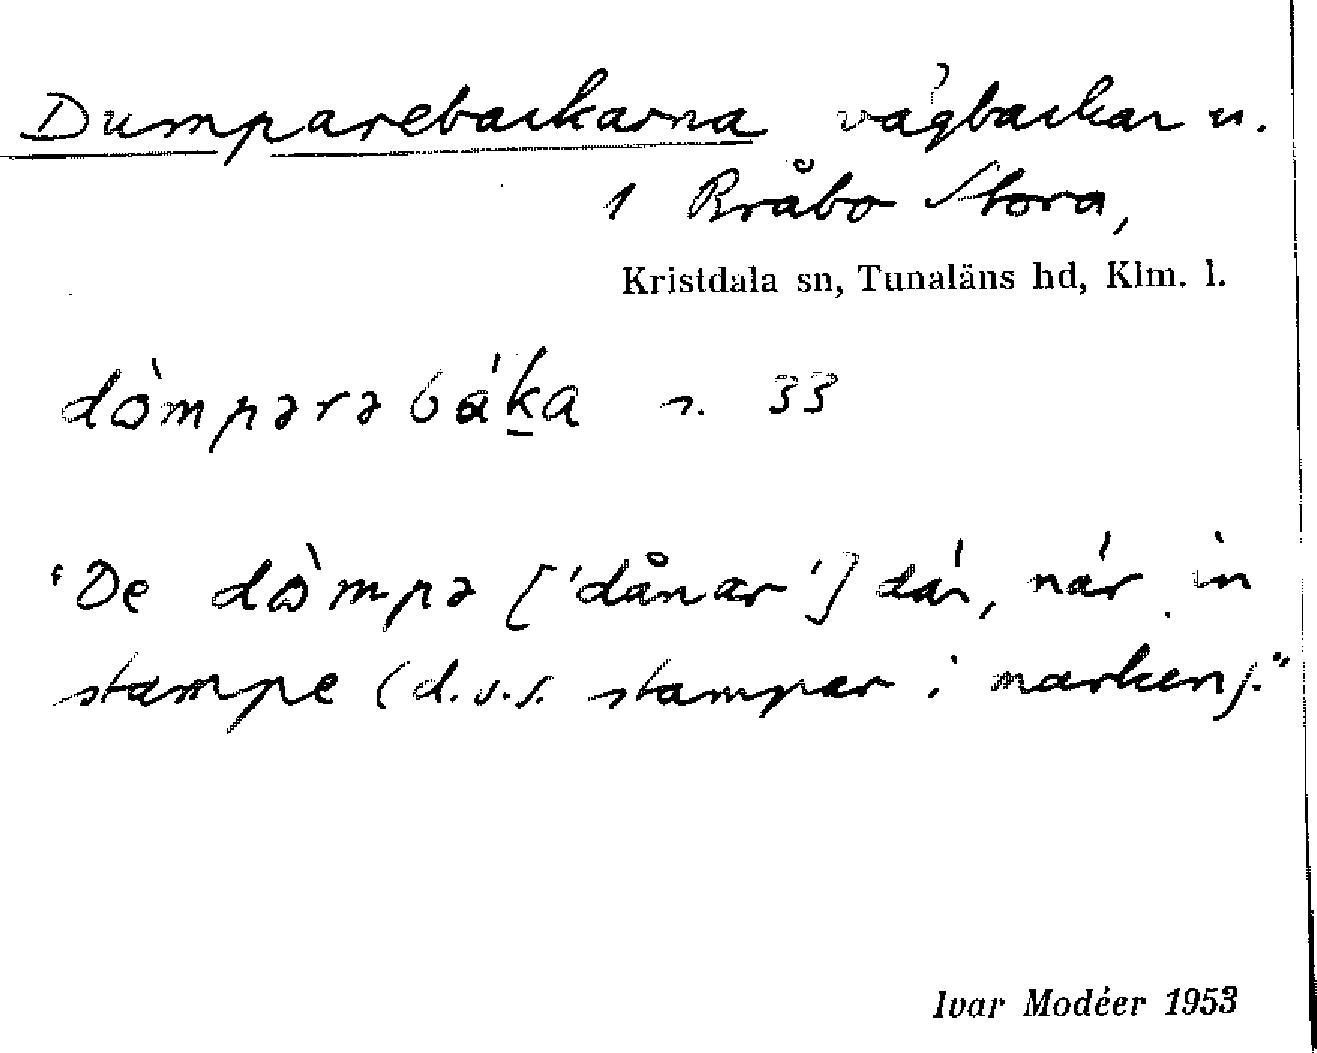 Dumparebackarna vägbackar n.
1 Bråbo Stora,
Kristdala sn, Tunaläns hd, Klm. l.
dòmpərəbáka s. 33
"De dòmpə ['dånar'] dár, nár in
stampe (d.v.s. stampar i marken)."
Ivar Modéer 1953